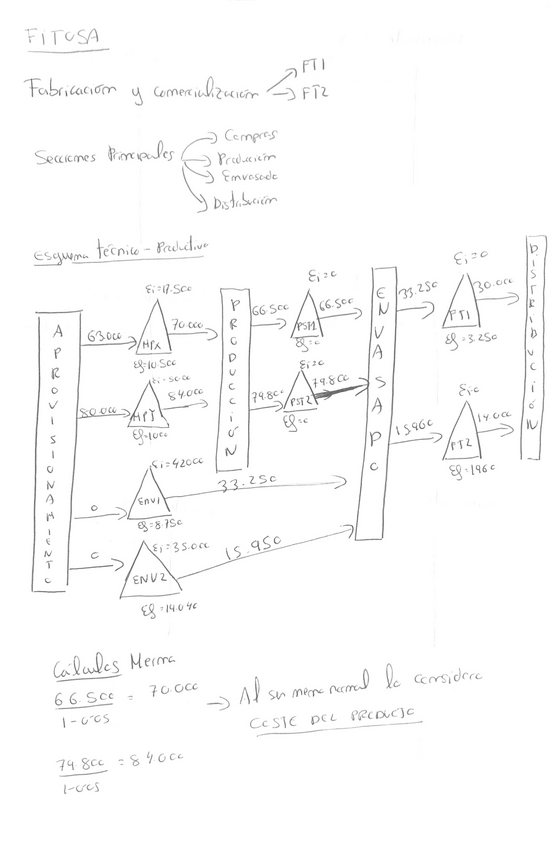 FITOSA
Fabricación y comercialización
FT1
FT2
Secciones Principales
Compras
Producción
Envasado
Distribución
Esquema técnico - Productivo
APROVISIONAMIENTO
63.000
Ei=17.500
MPX
Ef=10.500
70.000
80.000
MPY
Ef=1000
84.000
0
Ei=42000
ENV1
Ef=8.750
33.250
0
Ei=35.000
ENV2
Ef=14.040
15.950
PRODUCCIÓN
66.500
Ei=0
PST1
Ef=0
66.500
79.800
Ei=0
PST2
Ef=0
79.800
ENVASADO
33.250
Ei=0
FT1
Ef=3.250
30.000
15960
Ei=0
FT2
Ef=1960
14.000
DISTRIBUCIÓN
Cálculos Merma
66.500 = 70.000
1-0'05
Al ser merma normal lo considera
COSTE DEL PRODUCTO
79.800 = 84.000
1-0'05